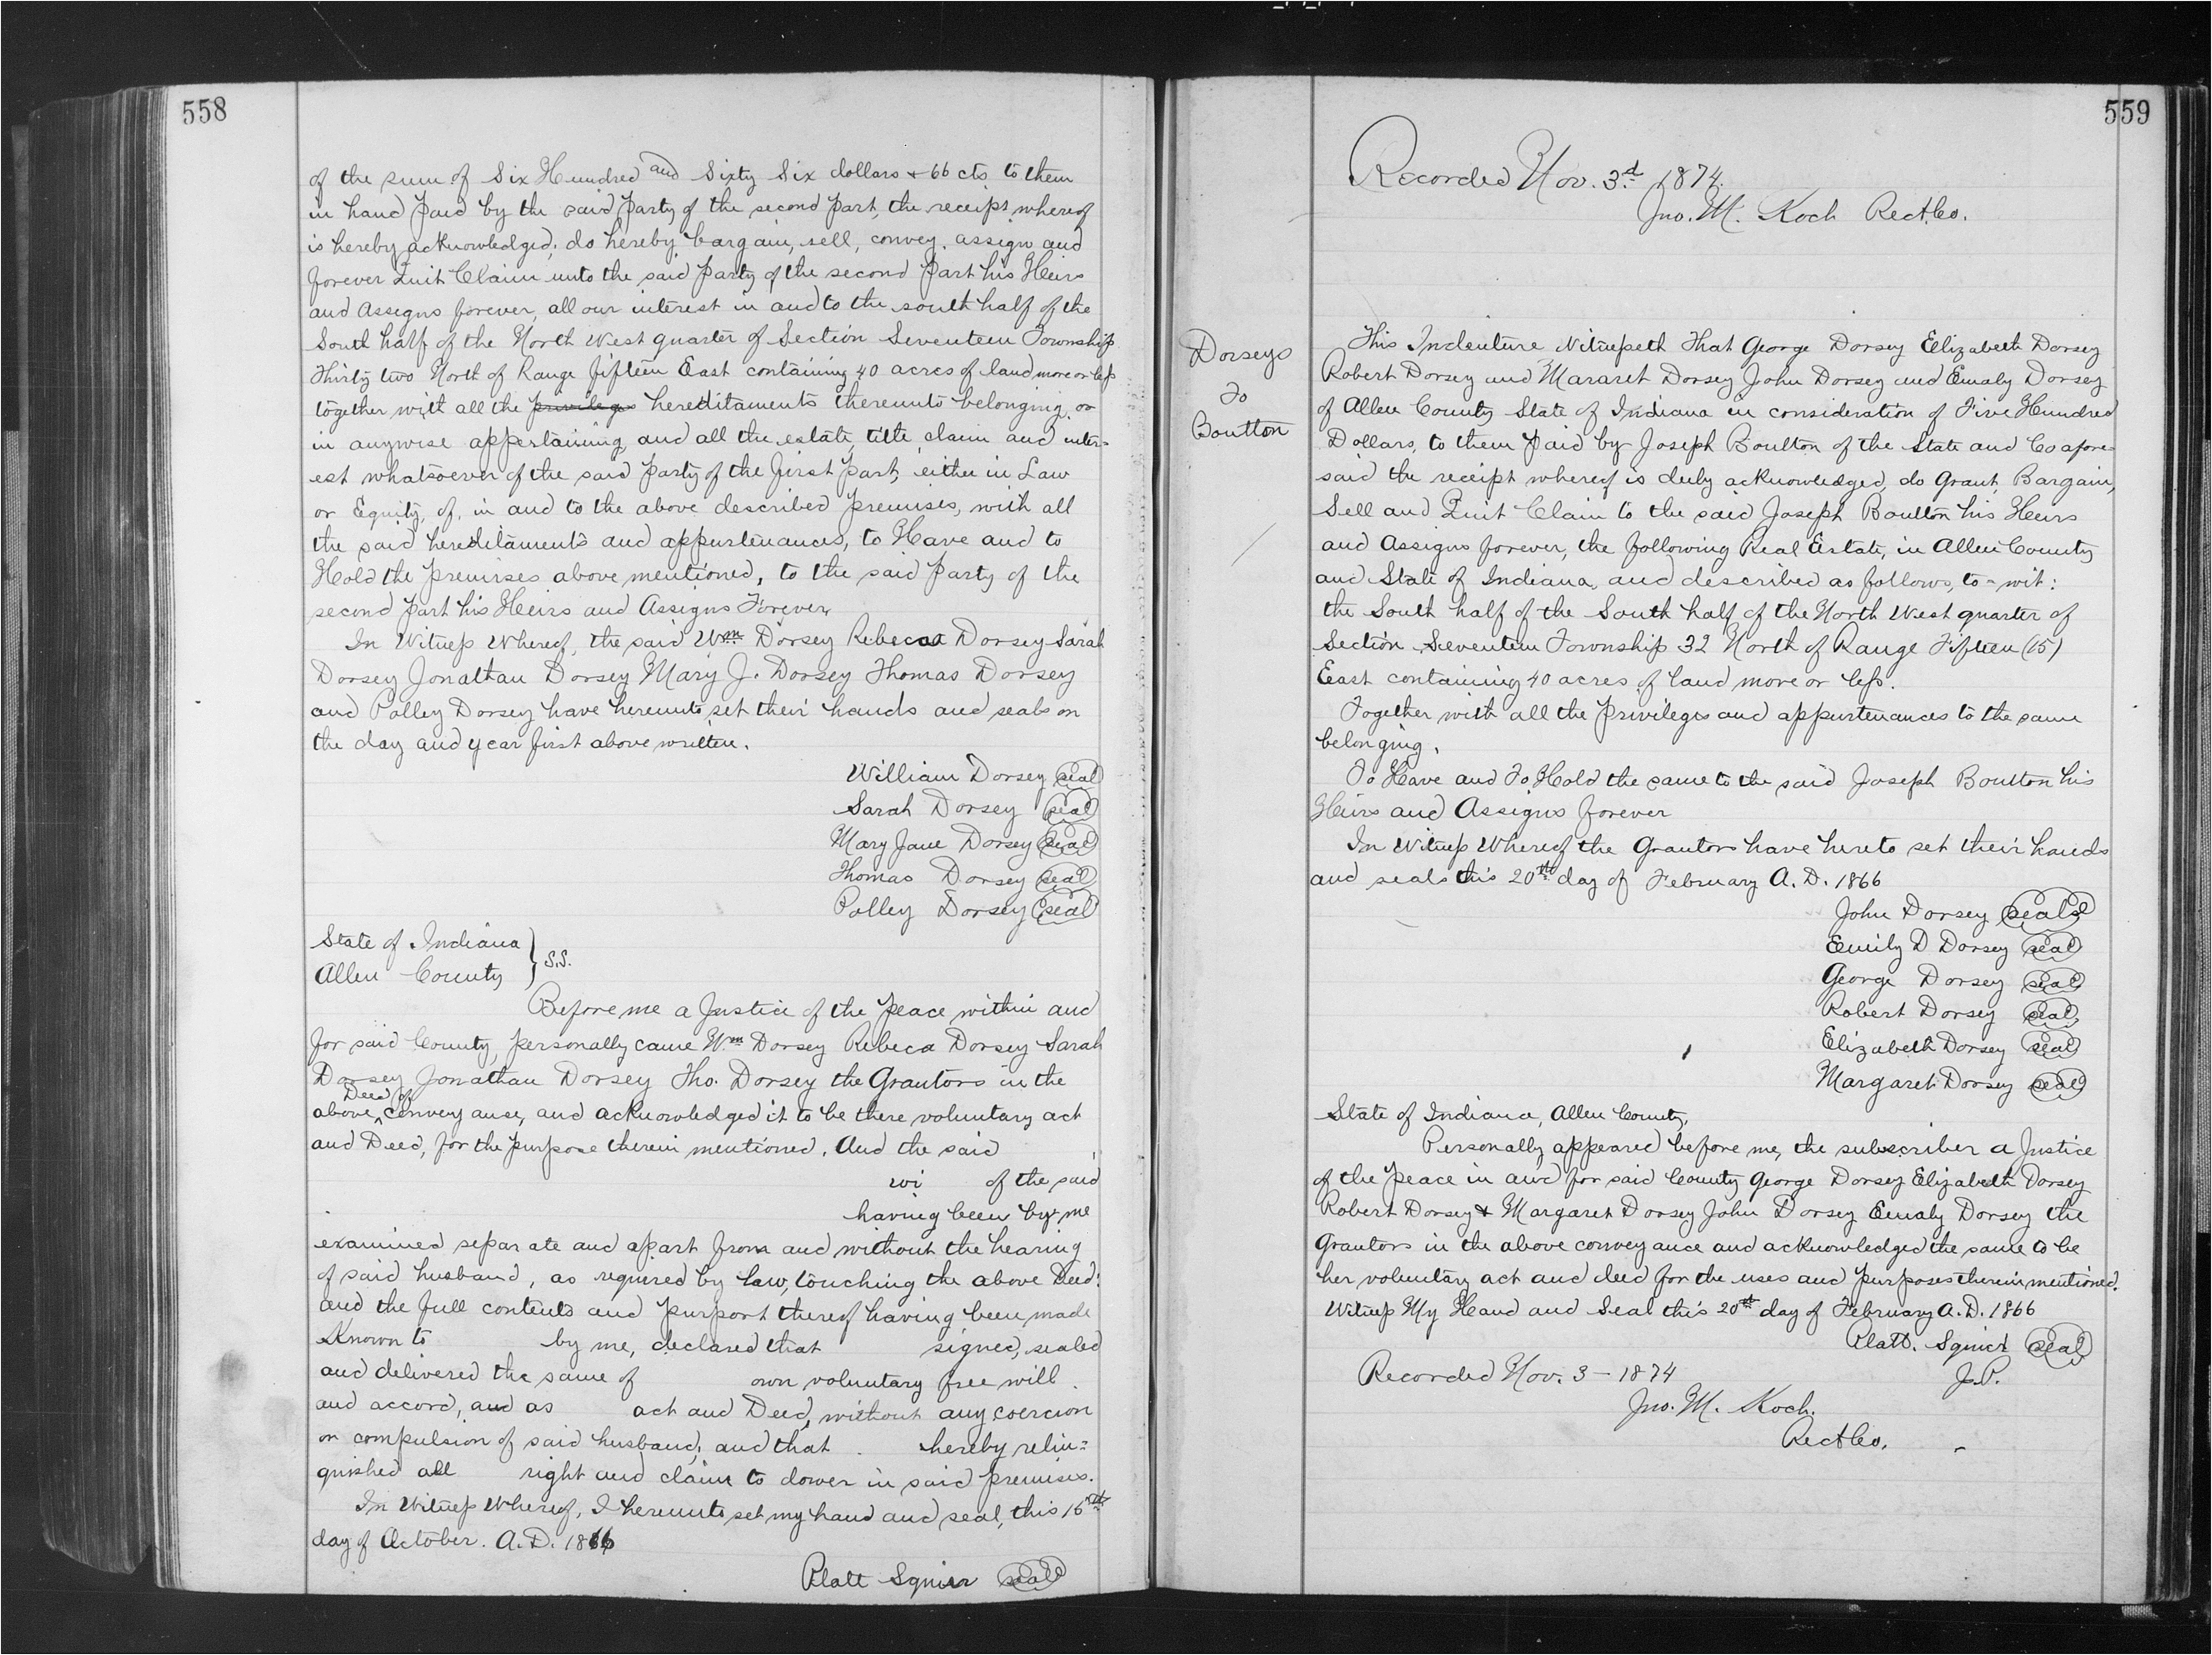 558
of the sum of Six Hundred and Sixty Six dollars & 66 cts to them
in hand paid by the said party of the second part, the receipt whereof
is hereby acknowledged; do hereby bargain, sell, convey, assign and
forever Quit Claim unto the said party of the second part his Heirs
and Assigns forever, all our interest in and to the south half of the
South half of the North West quarter of Section Seventeen Township
Thirty two North of Range fifteen East containing 40 acres of land more or less
together with all the privileges hereditaments thereunto belonging or
in anywise appertaining and all the estate, title claim and inter=
est whatsoever of the said party of the first part, either in Law
or Equity, of, in and to the above described premises, with all
the said hereditaments and appurtenances, to Have and to
Hold the premises above mentioned, to the said party of the
second part his Heirs and Assigns Forever,
In Witness Whereof, the said Wm Dorsey Rebecca Dorsey Sarah
Dorsey Jonathan Dorsey Mary J. Dorsey Thomas Dorsey
and Polley Dorsey have hereunto set their hands and seals on
the day and year first above written.
William Dorsey seal
Sarah Dorsey seal
Mary Jane Dorsey seal
Thomas Dorsey seal
Polley Dorsey seal
State of Indiana
Allen County } S.S.
Before me a Justice of the Peace within and
for said County, personally came Wm Dorsey Rebeca Dorsey Sarah
Dorsey Jonathan Dorsey Tho. Dorsey the Grantors in the
above Deed of Conveyanse, and acknowledged it to be there voluntary act
and Deed, for the purpose therein mentioned. And the said
wi of the said
having been by me
examined separate and apart from and without the hearing
of said husband, as required by law, touching the above Deed:
and the full contents and purport thereof having been made
Known to by me, declared that signed, sealed
and delivered the same of own voluntary free will
and accord, and as act and Deed, without any coercion
or compulsion of said husband; and that hereby relin=
quished all right and claim to dower in said premises.
In Witness Whereof, I hereunto set my hand and seal, this 16th
day of October. A.D. 1866
Platt Squier seal
559
Recorded Nov. 3d 1874.
Jno. M. Koch RecACo.
Dorseys
To
Boulton
This Indenture Witnesseth That George Dorsey Elizabeth Dorsey
Robert Dorsey and Mararet Dorsey John Dorsey and Emaly Dorsey
of Allen County State of Indiana in consideration of Five Hundred
Dollars, to them paid by Joseph Boulton of the State and Co afore=
said the receipt whereof is duly acknowledged, do Grant, Bargain,
Sell and Quit Claim to the said Joseph Boulton his Heirs
and Assigns forever, the following Real Estate, in Allen County
and State of Indiana, and described as follows, to-wit:
the South half of the South half of the North West quarter of
Section Seventeen Township 32 North of Range Fifteen (15)
East containing 40 acres of land more or less.
Together with all the privileges and appurtenances to the same
belonging.
To Have and To Hold the same to the said Joseph Boulton his
Heirs and Assigns forever
In Witness Whereof the Grantors have hereto set their hands
and seals this 20th day of February A.D. 1866
John Dorsey seal
Emily D Dorsey seal
George Dorsey seal
Robert Dorsey seal
Elizabeth Dorsey seal
Margaret Dorsey seal
State of Indiana, Allen County,
Personally appeared before me, the subscriber a Justice
of the Peace in and for said County George Dorsey Elizabeth Dorsey
Robert Dorsey & Margaret Dorsey John Dorsey Emaly Dorsey the
Grantors in the above conveyance and acknowledged the same to be
her voluntary act and deed for the uses and purposes therein mentioned.
Witness My Hand and Seal this 20th day of February A.D. 1866
Platt. Squier seal
J.P.
Recorded Nov. 3 - 1874
Jno. M. Koch.
RecACo.